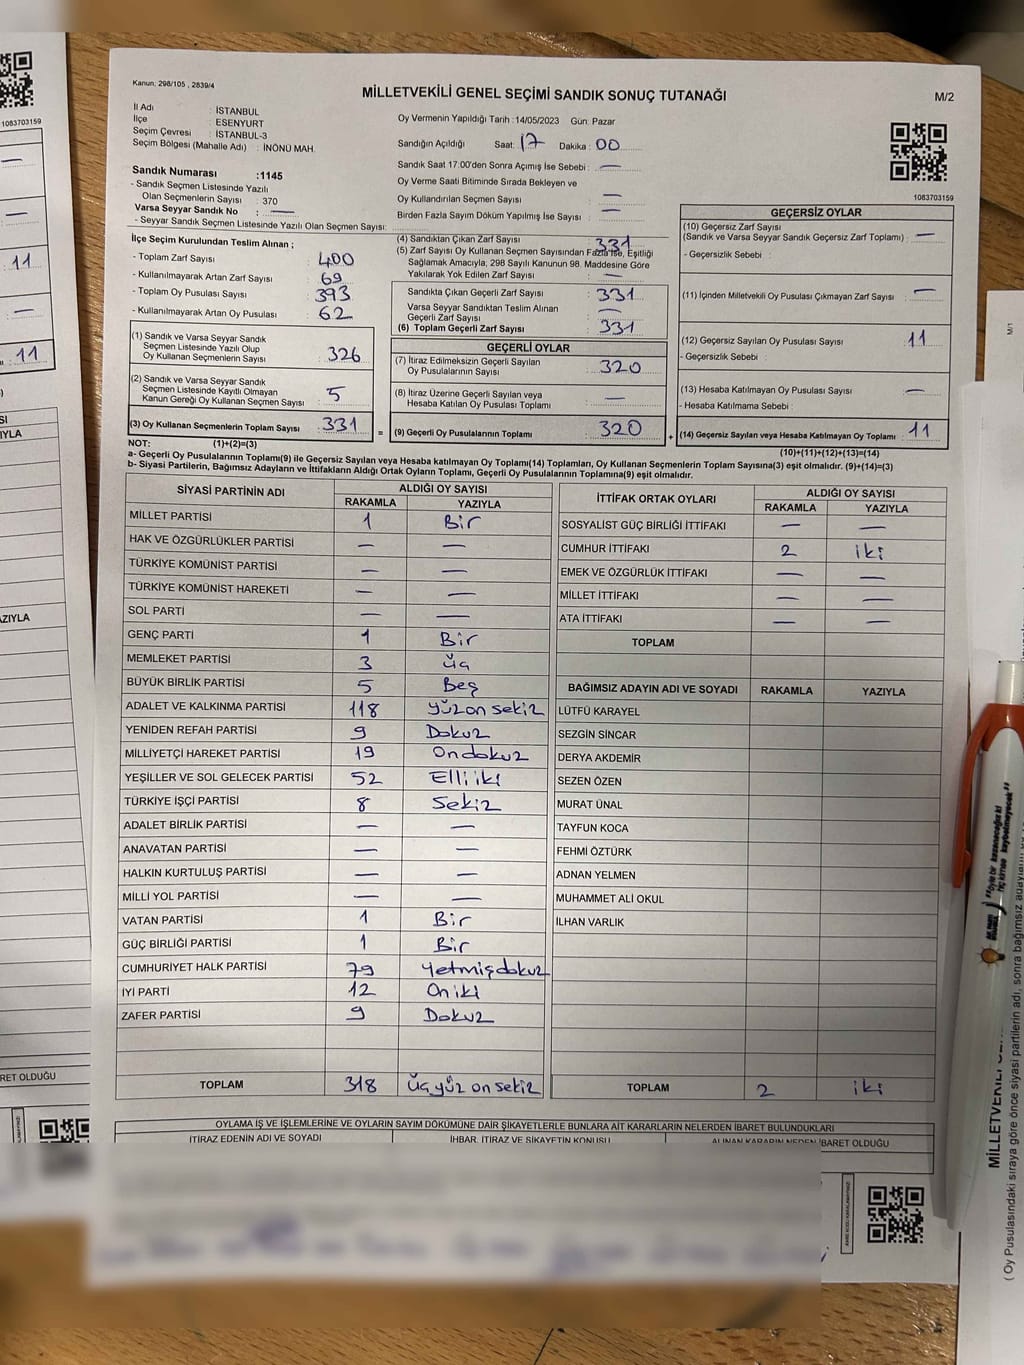 Kanun: 298/105 , 2839/4
MİLLETVEKİLİ GENEL SEÇİMİ SANDIK SONUÇ TUTANAĞI
M/2
İl Adı : İSTANBUL
İlçe : ESENYURT
Seçim Çevresi : İSTANBUL-3
Seçim Bölgesi (Mahalle Adı) : İNÖNÜ MAH.
Oy Vermenin Yapıldığı Tarih : 14/05/2023 Gün: Pazar
Sandığın Açıldığı Saat: 17 Dakika: 00
Sandık Saat 17:00'den Sonra Açımış İse Sebebi : —
Oy Verme Saati Bitiminde Sırada Bekleyen ve
Oy Kullandırılan Seçmen Sayısı —
Birden Fazla Sayım Döküm Yapılmış İse Sayısı : —
Sandık Numarası :1145
- Sandık Seçmen Listesinde Yazılı
Olan Seçmenlerin Sayısı : 370
Varsa Seyyar Sandık No : —
- Seyyar Sandık Seçmen Listesinde Yazılı Olan Seçmen Sayısı:
1083703159
İlçe Seçim Kurulundan Teslim Alınan ;
- Toplam Zarf Sayısı : 400
- Kullanılmayarak Artan Zarf Sayısı : 69
- Toplam Oy Pusulası Sayısı : 393
- Kullanılmayarak Artan Oy Pusulası : 62
(1) Sandık ve Varsa Seyyar Sandık
Seçmen Listesinde Yazılı Olup
Oy Kullanan Seçmenlerin Sayısı : 326
(2) Sandık ve Varsa Seyyar Sandık
Seçmen Listesinde Kayıtlı Olmayan
Kanun Gereği Oy Kullanan Seçmen Sayısı : 5
(3) Oy Kullanan Seçmenlerin Toplam Sayısı : 331 =
(4) Sandıktan Çıkan Zarf Sayısı 331
(5) Zarf Sayısı Oy Kullanan Seçmen Sayısından Fazla İse, Eşitliği
Sağlamak Amacıyla, 298 Sayılı Kanunun 98. Maddesine Göre
Yakılarak Yok Edilen Zarf Sayısı : —
Sandıkta Çıkan Geçerli Zarf Sayısı : 331
Varsa Seyyar Sandıktan Teslim Alınan
Geçerli Zarf Sayısı : —
(6) Toplam Geçerli Zarf Sayısı : 331
GEÇERLİ OYLAR
(7) İtiraz Edilmeksizin Geçerli Sayılan
Oy Pusulalarının Sayısı : 320
(8) İtiraz Üzerine Geçerli Sayılan veya
Hesaba Katılan Oy Pusulası Toplamı : —
(9) Geçerli Oy Pusulalarının Toplamı : 320 +
GEÇERSİZ OYLAR
(10) Geçersiz Zarf Sayısı
(Sandık ve Varsa Seyyar Sandık Geçersiz Zarf Toplamı) : —
- Geçersizlik Sebebi :
(11) İçinden Milletvekili Oy Pusulası Çıkmayan Zarf Sayısı : —
(12) Geçersiz Sayılan Oy Pusulası Sayısı : 11
- Geçersizlik Sebebi :
(13) Hesaba Katılmayan Oy Pusulası Sayısı : —
- Hesaba Katılmama Sebebi :
(14) Geçersiz Sayılan veya Hesaba Katılmayan Oy Toplamı : 11
NOT: (1)+(2)=(3)
(10)+(11)+(12)+(13)=(14)
a- Geçerli Oy Pusulalarının Toplamı(9) ile Geçersiz Sayılan veya Hesaba katılmayan Oy Toplamı(14) Toplamları, Oy Kullanan Seçmenlerin Toplam Sayısına(3) eşit olmalıdır. (9)+(14)=(3)
b- Siyasi Partilerin, Bağımsız Adayların ve İttifakların Aldığı Ortak Oyların Toplamı, Geçerli Oy Pusulalarının Toplamına(9) eşit olmalıdır.
SİYASİ PARTİNİN ADI ALDIĞI OY SAYISI
RAKAMLA YAZIYLA
MİLLET PARTİSİ 1 Bir
HAK VE ÖZGÜRLÜKLER PARTİSİ — —
TÜRKİYE KOMÜNİST PARTİSİ — —
TÜRKİYE KOMÜNİST HAREKETİ — —
SOL PARTİ — —
GENÇ PARTİ 1 Bir
MEMLEKET PARTİSİ 3 üç
BÜYÜK BİRLİK PARTİSİ 5 Beş
ADALET VE KALKINMA PARTİSİ 118 Yüz on sekiz
YENİDEN REFAH PARTİSİ 9 Dokuz
MİLLİYETÇİ HAREKET PARTİSİ 19 Ondokuz
YEŞİLLER VE SOL GELECEK PARTİSİ 52 Elli iki
TÜRKİYE İŞÇİ PARTİSİ 8 Sekiz
ADALET BİRLİK PARTİSİ — —
ANAVATAN PARTİSİ — —
HALKIN KURTULUŞ PARTİSİ — —
MİLLİ YOL PARTİSİ — —
VATAN PARTİSİ 1 Bir
GÜÇ BİRLİĞİ PARTİSİ 1 Bir
CUMHURİYET HALK PARTİSİ 79 Yetmişdokuz
İYİ PARTİ 12 Oniki
ZAFER PARTİSİ 9 Dokuz
TOPLAM 318 üç yüz on sekiz
İTTİFAK ORTAK OYLARI ALDIĞI OY SAYISI
RAKAMLA YAZIYLA
SOSYALİST GÜÇ BİRLİĞİ İTTİFAKI — —
CUMHUR İTTİFAKI 2 iki
EMEK VE ÖZGÜRLÜK İTTİFAKI — —
MİLLET İTTİFAKI — —
ATA İTTİFAKI — —
TOPLAM
BAĞIMSIZ ADAYIN ADI VE SOYADI RAKAMLA YAZIYLA
LÜTFÜ KARAYEL
SEZGİN SİNCAR
DERYA AKDEMİR
SEZEN ÖZEN
MURAT ÜNAL
TAYFUN KOCA
FEHMİ ÖZTÜRK
ADNAN YELMEN
MUHAMMET ALİ OKUL
İLHAN VARLIK
TOPLAM 2 iki
OYLAMA İŞ VE İŞLEMLERİNE VE OYLARIN SAYIM DÖKÜMÜNE DAİR ŞİKAYETLERLE BUNLARA AİT KARARLARIN NELERDEN İBARET BULUNDUKLARI
İTİRAZ EDENİN ADI VE SOYADI İHBAR, İTİRAZ VE ŞİKAYETİN KONUSU ALINAN KARARIN NEDEN İBARET OLDUĞU
1083703159
11
11
YAZIYLA
RET OLDUĞU
M/1
( Oy Pusulasındaki sıraya göre önce siyasi partilerin adı, sonra bağımsız adayların